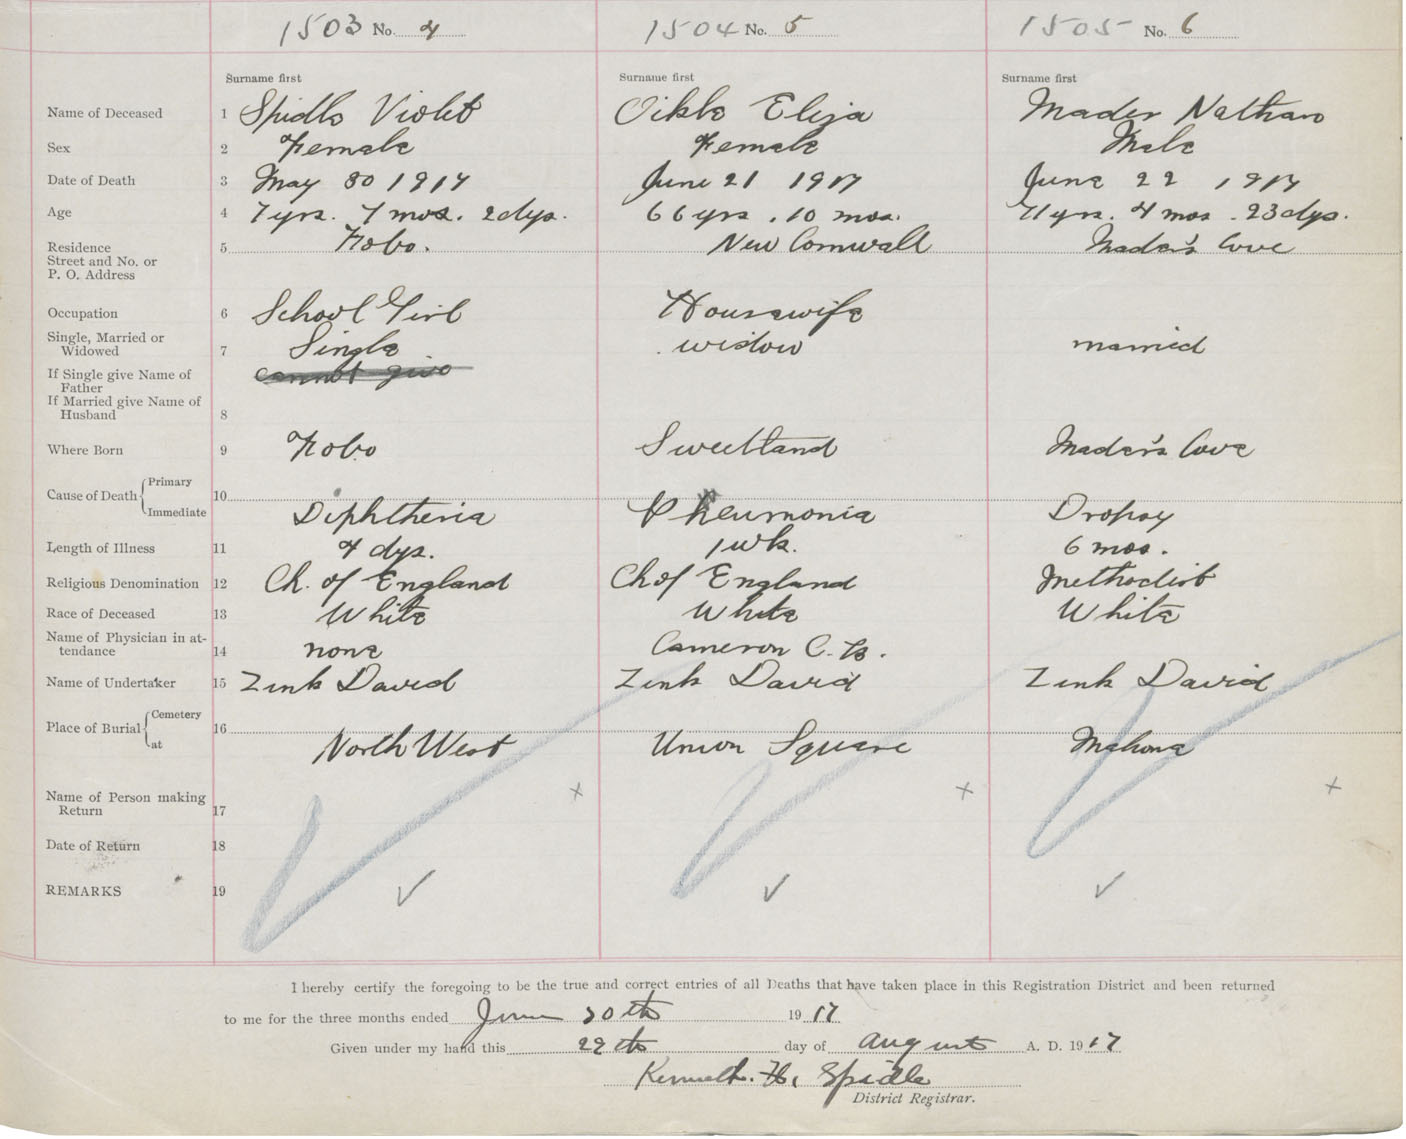 1503 No. 4 1504 No. 5 1505 No. 6
Surname first Surname first Surname first
Name of Deceased 1 Spidle Violet Oikle Eliza Mader Nathan
Sex 2 Female Female Male
Date of Death 3 May 30 1917 June 21 1917 June 22 1917
Age 4 7 yrs. 7 mos. 2 dys. 66 yrs. 10 mos. 71 yrs. 4 mos. 23 dys.
Residence 5 Nobo. New Cornwall Mader's Cove
Street and No. or
P. O. Address
Occupation 6 School Girl Housewife
Single, Married or
Widowed 7 Single widow married
If Single give Name of cannot give
Father
If Married give Name of
Husband 8
Where Born 9 Nobo Sweetland Mader's Cove
Cause of Death Primary 10
Immediate Diphtheria Pheumonia Dropsy
Length of Illness 11 4 dys. 1 wk. 6 mos.
Religious Denomination 12 Ch. of England Ch of England Methodist
Race of Deceased 13 White White White
Name of Physician in at-
tendance 14 none Cameron C. B.
Name of Undertaker 15 Zink David Zink David Zink David
Place of Burial Cemetery 16
at North West Union Square Mahone
Name of Person making
Return 17
Date of Return 18
REMARKS 19
I hereby certify the foregoing to be the true and correct entries of all Deaths that have taken place in this Registration District and been returned
to me for the three months ended June 30th 1917
Given under my hand this 29th day of August A. D. 1917
Kenneth. H. Spidle
District Registrar.